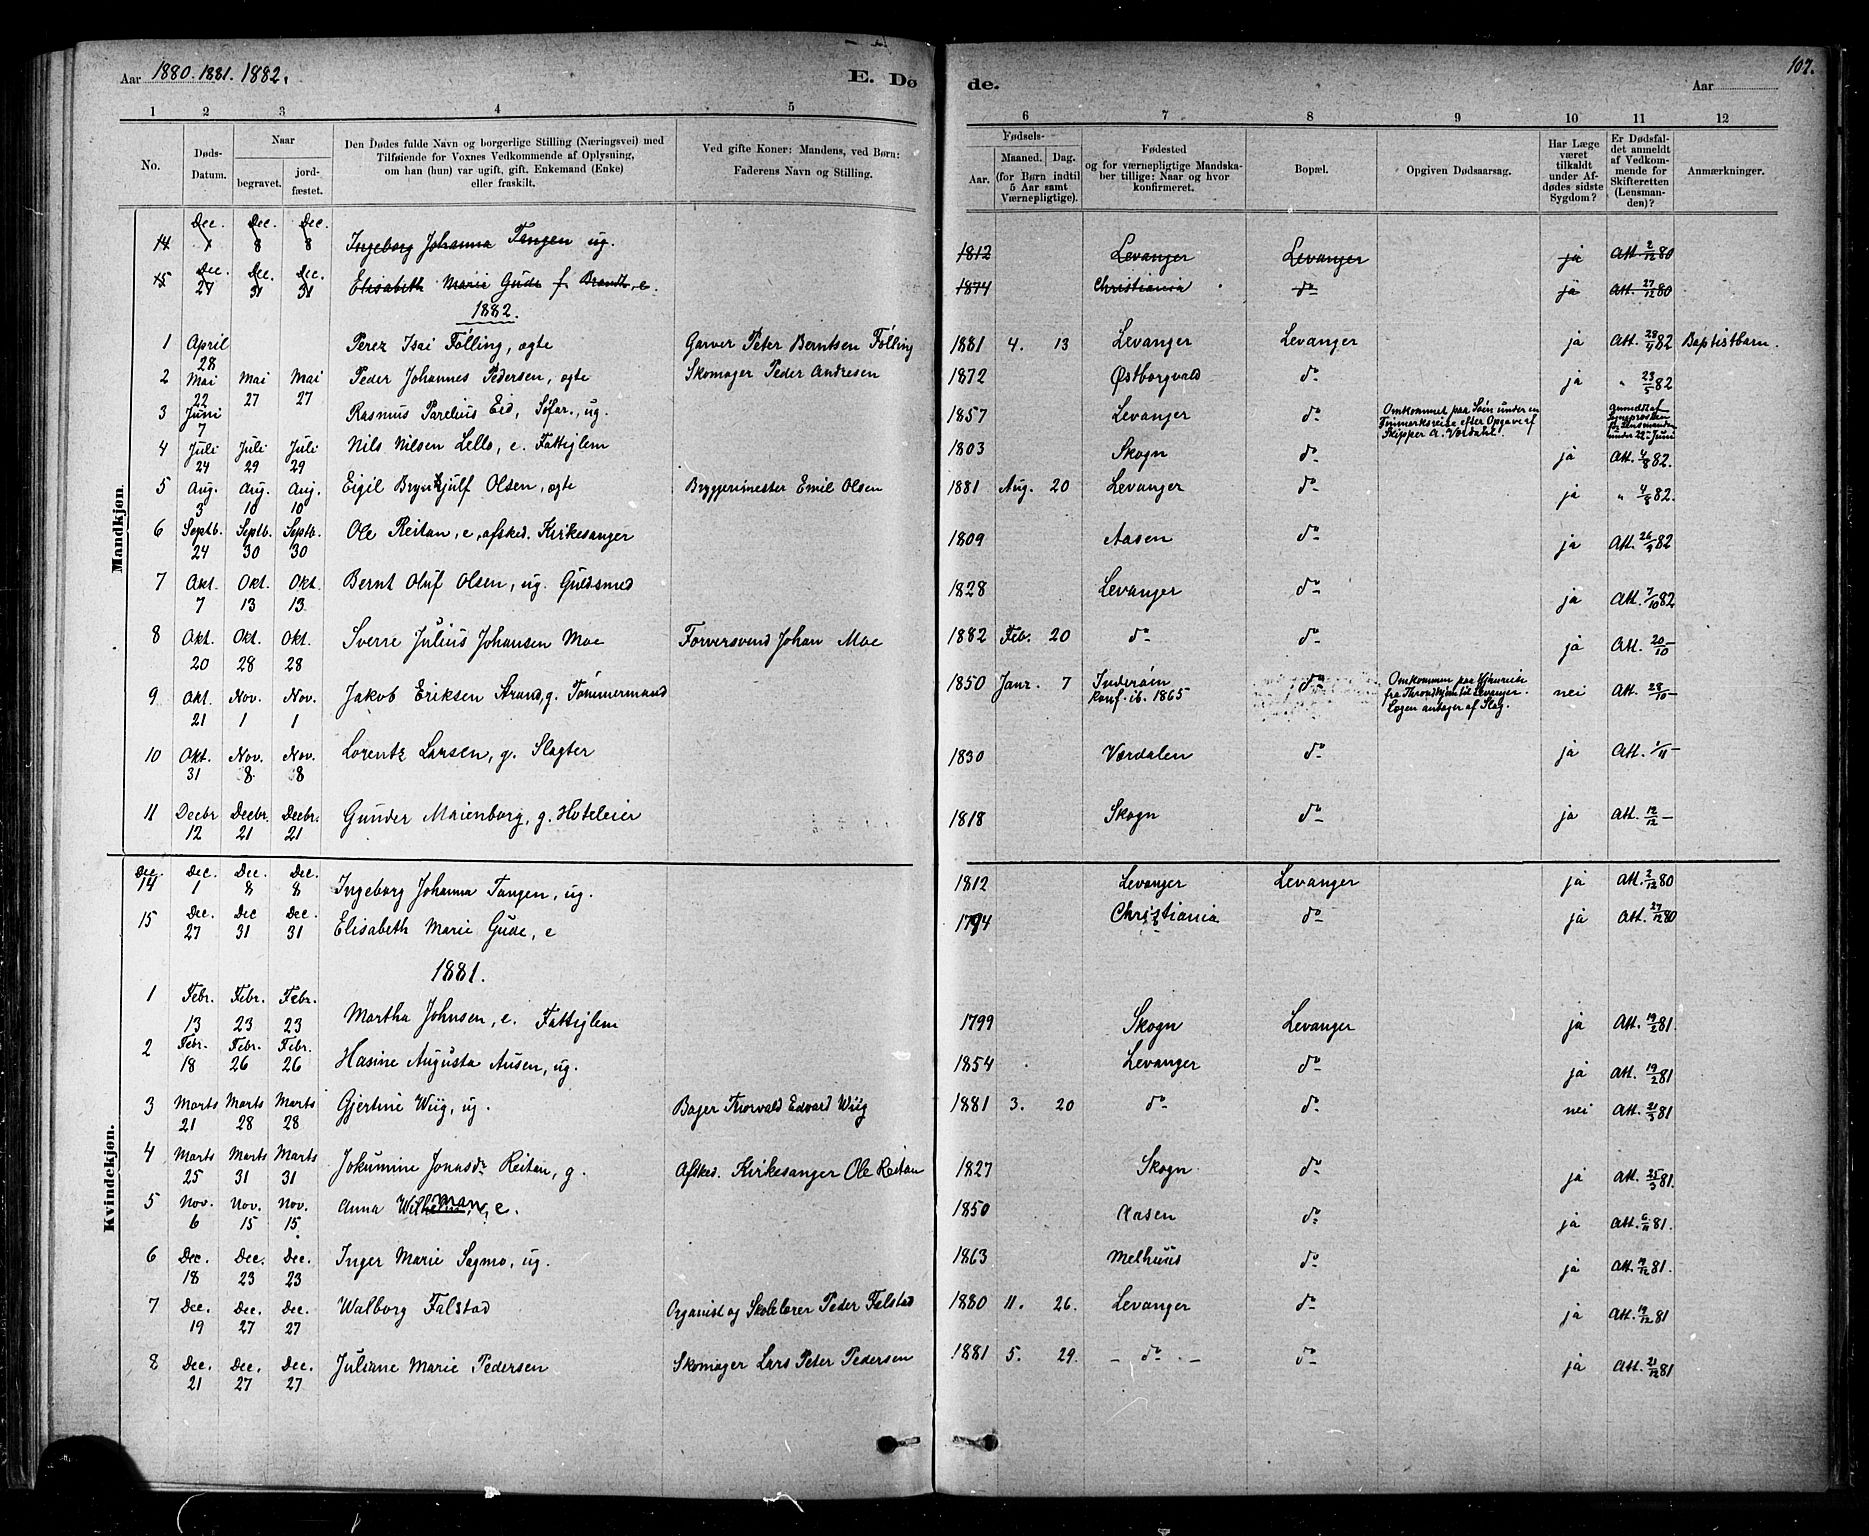 Aar 1880. 1881. 1882.
E. Dø
de.
Aar
107.
1 2 3 4 5 6 7 8 9 10 11 12
No.
Døds-Datum.
Naar
begravet.
jord-fæstet.
Den Dødes fulde Navn og borgerlige Stilling (Næringsvei) med
Tilføiende for Voxnes Vedkommende af Oplysning,
om han (hun) var ugift, gift, Enkemand (Enke)
eller fraskilt.
Ved gifte Koner: Mandens, ved Børn:
Faderens Navn og Stilling.
Fødsels-
Aar.
Maaned. Dag.
(for Børn indtil
5 Aar samt
Værnepligtige).
Fødested
og for værnepligtige Mandska-
ber tillige: Naar og hvor
konfirmeret.
Bopæl.
Opgiven Dødsaarsag.
Har Læge
været
tilkaldt
under Af-
dødes sidste
Sygdom?
Er Dødsfal-
det anmeldt
af Vedkom-
mende for
Skifteretten
(Lensman-
den)?
Anmærkninger.
Mandkjøn.
14 Dec. 1 Dec. 8 Dec. 8 Ingeborg Johanna Tangen ug. 1812 Levanger Levanger ja Att. 2/12 80
15 Dec. 27 Dec. 31 Dec. 31 Elisabeth Marie Gude f. Brandt, e. 1874 Christiania do ja Att. 27/12 80
1882.
1 April 28 Perez Isai Følling, ægte Garver Peter Berntsen Følling 1881 4. 13 Levanger Levanger ja Att. 28/4 82 Baptistbarn.
2 Mai 22 Mai 27 Mai 27 Peder Johannes Pedersen, ægte Skomager Peder Andresen 1872 Østborgvald do ja " 23/5 82
3 Juni 7 Rasmus Parelius Eid, Søfar., ug. 1857 Levanger do Omkommet paa Søen under en
Finmarksreise efter Opgave af
Skipper A. Verdahl.
Lensmanden
under 22 Juni
4 Juli 24 Juli 29 Juli 29 Nils Nilsen Lello, e. Fattiglem 1803 Skogn do ja Att. 4/8 82.
5 Aug. 3 Aug. 10 Aug. 10 Eigil Brynhjulf Olsen, ægte Bryggerimester Emil Olsen 1881 Aug. 20 Levanger do ja " 4/8 82.
6 Septb. 24 Septb. 30 Septb. 30 Ole Reitan, e, afsked. Kirkesanger 1809 Aasen do ja Att. 26/9 82
7 Okt. 7 Okt. 13 Okt. 13. Bernt Oluf Olsen, ug. Guldsmed 1828 Levanger do ja Att. 7/10 82
8 Okt. 20 Okt. 28 Okt. 28 Sverre Julius Johansen Moe Farversvend Johan Moe 1882 Feb. 20 do do ja Att. 20/10 -
9 Okt. 21 Nov. 1 Nov. 1 Jakob Eriksen Strand, g. Tømmermand 1850 Janr. 7 Inderøen
konf. ib. 1865 do Omkommen paa Hjemreise
fra Throndhjem til Levanger.
Lægen antager af Slag. nei Att. 28/10 -
10 Okt. 31 Nov. 8 Nov. 8 Lorentz Larsen, g. Slagter 1830 Værdalen do ja Att. 1/11 -
11 Decbr 12 Decbr. 21 Decbr. 21 Gunder Marienborg, g. Hoteleier 1818 Skogn do ja Att. 12/12 -
Kvindekjøn.
Dec.
14 Dec. 1 Dec. 8 Dec. 8 Ingeborg Johanna Tangen, ug. 1812 Levanger Levanger ja Att. 2/12 80
15 Dec. 27 Dec 31 Dec. 31 Elisabeth Marie Gude, e 1794 Christiania do ja Att. 27/12 80
1881.
1 Febr. 13 Febr. 23 Febr. 23 Martha Johnsen, e. Fattiglem 1799 Skogn Levanger ja Att. 19/2 81.
2 Febr. 18 Febr. 26 Febr. 26 Hasine Augusta Ausen, ug. 1854 Levanger do ja Att. 19/2 81
3 Marts 21 Marts 28 Marts 28 Gjertine Wiig, ug. Bager Thorvald Edvard Wiig 1881 3. 20 do do nei Att. 21/3 81
4 Marts 25 Marts 31 Marts 31 Jokumine Jonasdr Reitan, g. Afsked. Kirkesanger Ole Reitan 1827 Skogn do ja Att. 25/3 81.
5 Nov. 6 Nov. 15 Nov. 15 Anna Wilhelman, e. 1850 Aasen do ja Att. 6/11 81.
6 Dec. 18 Dec. 23 Dec. 23 Inger Marie Sagmo, ug. 1863 Melhuus do ja Att. 19/12 81.
7 Dec. 19 Dec. 27 Dec. 27 Walborg Falstad Organist og Skolelærer Peder Falstad 1880 11. 26. Levanger do ja Att. 19/12 81
8 Dec. 21 Dec. 27 Dec. 27 Juliane Marie Pedersen Skomager Lars Peter Pedersen 1881 5. 29. - do - do ja Att. 21/12 81